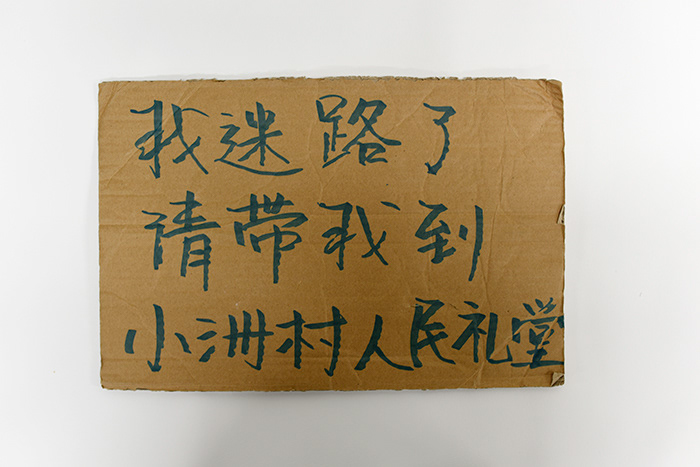 我迷路了
请带我到
小洲村人民礼堂